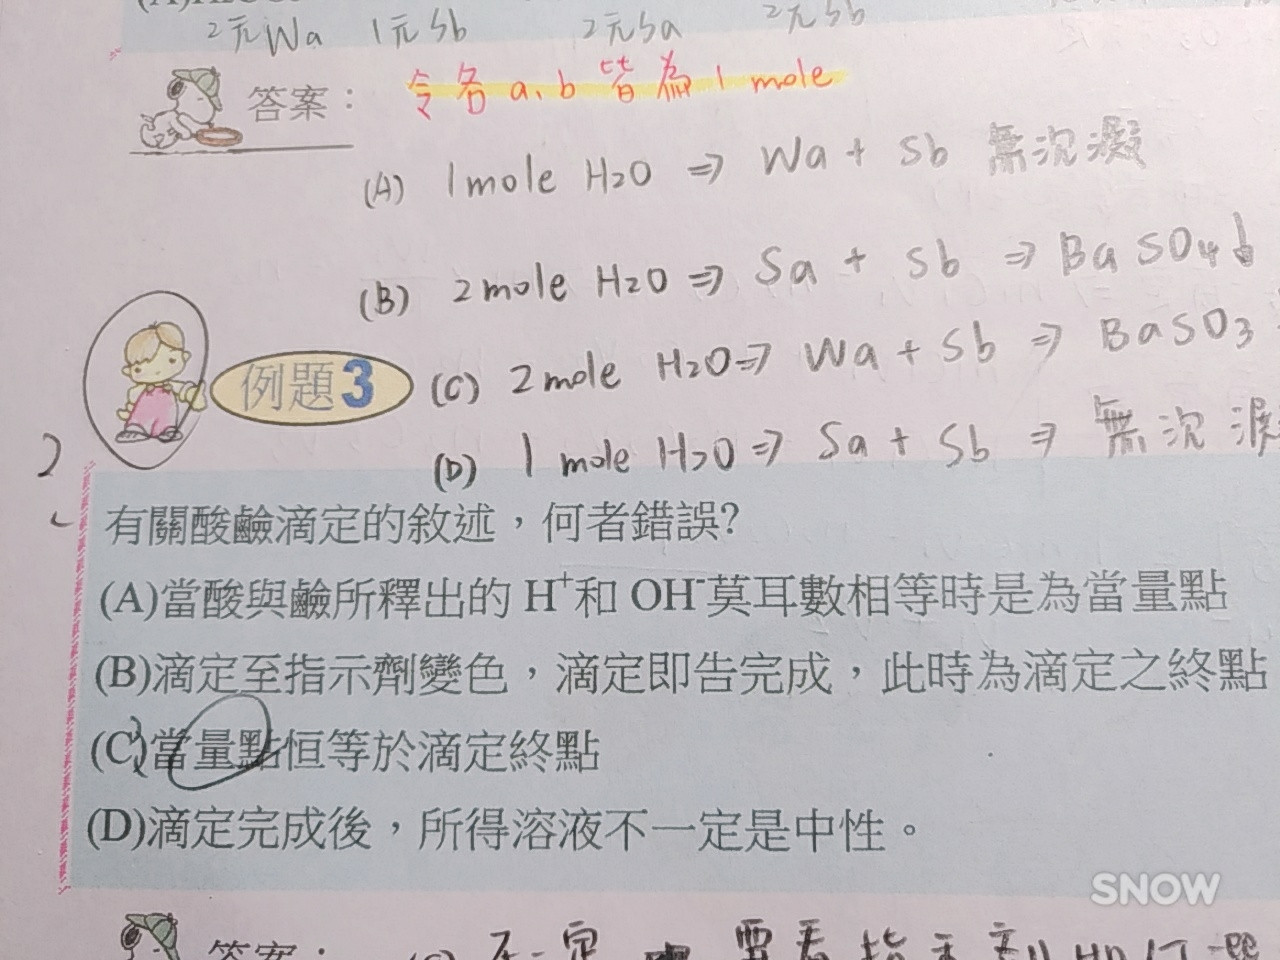 2元Wa 1元Sb 2元Sa 2元Sb
答案： 令各a、b皆為1 mole
(A) 1mole H2O ⇒ Wa + Sb 無沉澱
(B) 2mole H2O ⇒ Sa + Sb ⇒ BaSO4↓
例題3 (C) 2mole H2O ⇒ Wa + Sb ⇒ BaSO3
(D) 1 mole H2O ⇒ Sa + Sb ⇒ 無沉澱
有關酸鹼滴定的敘述，何者錯誤?
(A)當酸與鹼所釋出的 H⁺和 OH⁻莫耳數相等時是為當量點
(B)滴定至指示劑變色，滴定即告完成，此時為滴定之終點
(C)當量點恒等於滴定終點
(D)滴定完成後，所得溶液不一定是中性。
SNOW
答案： (C) 不一定 要看指示劑如何選